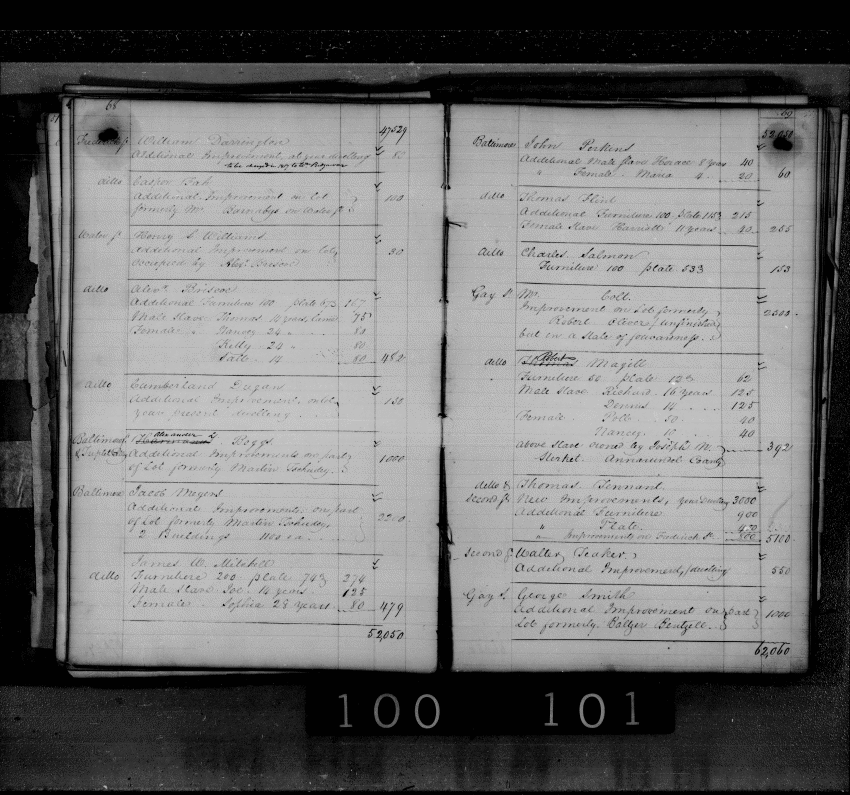 68
47529
Frederick St William Darrington
Additional Improvement, at your dwelling 80
ditto Casper
Additional Improvement on Lot
formerly Mr. Barnabys on Water St 100
Water St Henry L. Williams
Additional Improvement on Lot
occupied by Alexr. Briscoe 80
ditto Alexr. Briscoe
Additional Furniture 100 plate 67/3 167
Male Slave Thomas 14 years, 75
Female " Nancy 24 " 80
Kelly 24 80
14 80 482
ditto Cumberland Dugan
Additional Improvement, on lot
your present dwelling
Baltimore & Alexander Boggs
Additional Improvements on part
of Lot formerly Martin Tschudy 1000
Baltimore Jacob Myers
Additional Improvements on part
of Lot formerly Martin Tschudy,
2 Buildings 1100 ea. 2200
James W. Mitchell
ditto Furniture 200 plate 74/3 274
Male Slave Joe 14 years 125
Female Sophia 28 years 80 479
52,050
69
52,050
Baltimore John Perkins
Additional Male Slave Horace 8 years 40
" Female Maria 4 20 60
ditto Thomas Flint
Additional Furniture 100 plate 115/3 215
Female Slave Harriott 11 years 40 255
ditto Charles Salmon
Furniture 100 plate 53/3 153
Gay St. Mr. Colt
Improvement on Lot formerly
Robert Oliver, (unfinished
but in a State of forwardness 2300
ditto Robert Magill
Furniture 50 plate 12/3 62
Male Slave Richard 16 years 125
Dennis 14 125
Female Poll 50 40
Nancy 40
Above Slave owned by Joseph N.
Stocket Annarundel County 392
ditto & Thomas Tennant
Second St New Improvements, your Dwelling 3000
Additional Furniture 900
" Plate 400
" Improvements on Frederick St. 800 5100
Second St Walter
Additional Improvement, dwelling 550
Gay St. George Smith
Additional Improvement on part
Lot formerly Baltzer Bentzell 1000
62,060
100 101